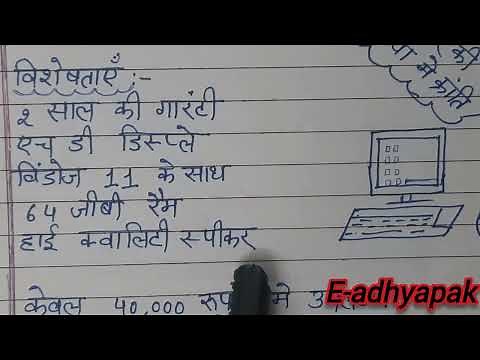 की
में क्रांति
विशेषताएँ :-
2 साल की गारंटी
एच डी डिस्प्ले
विंडोज 11 के साथ
64 जीबी रैम
हाई क्वालिटी स्पीकर
केवल 40,000 में
E-adhyapak